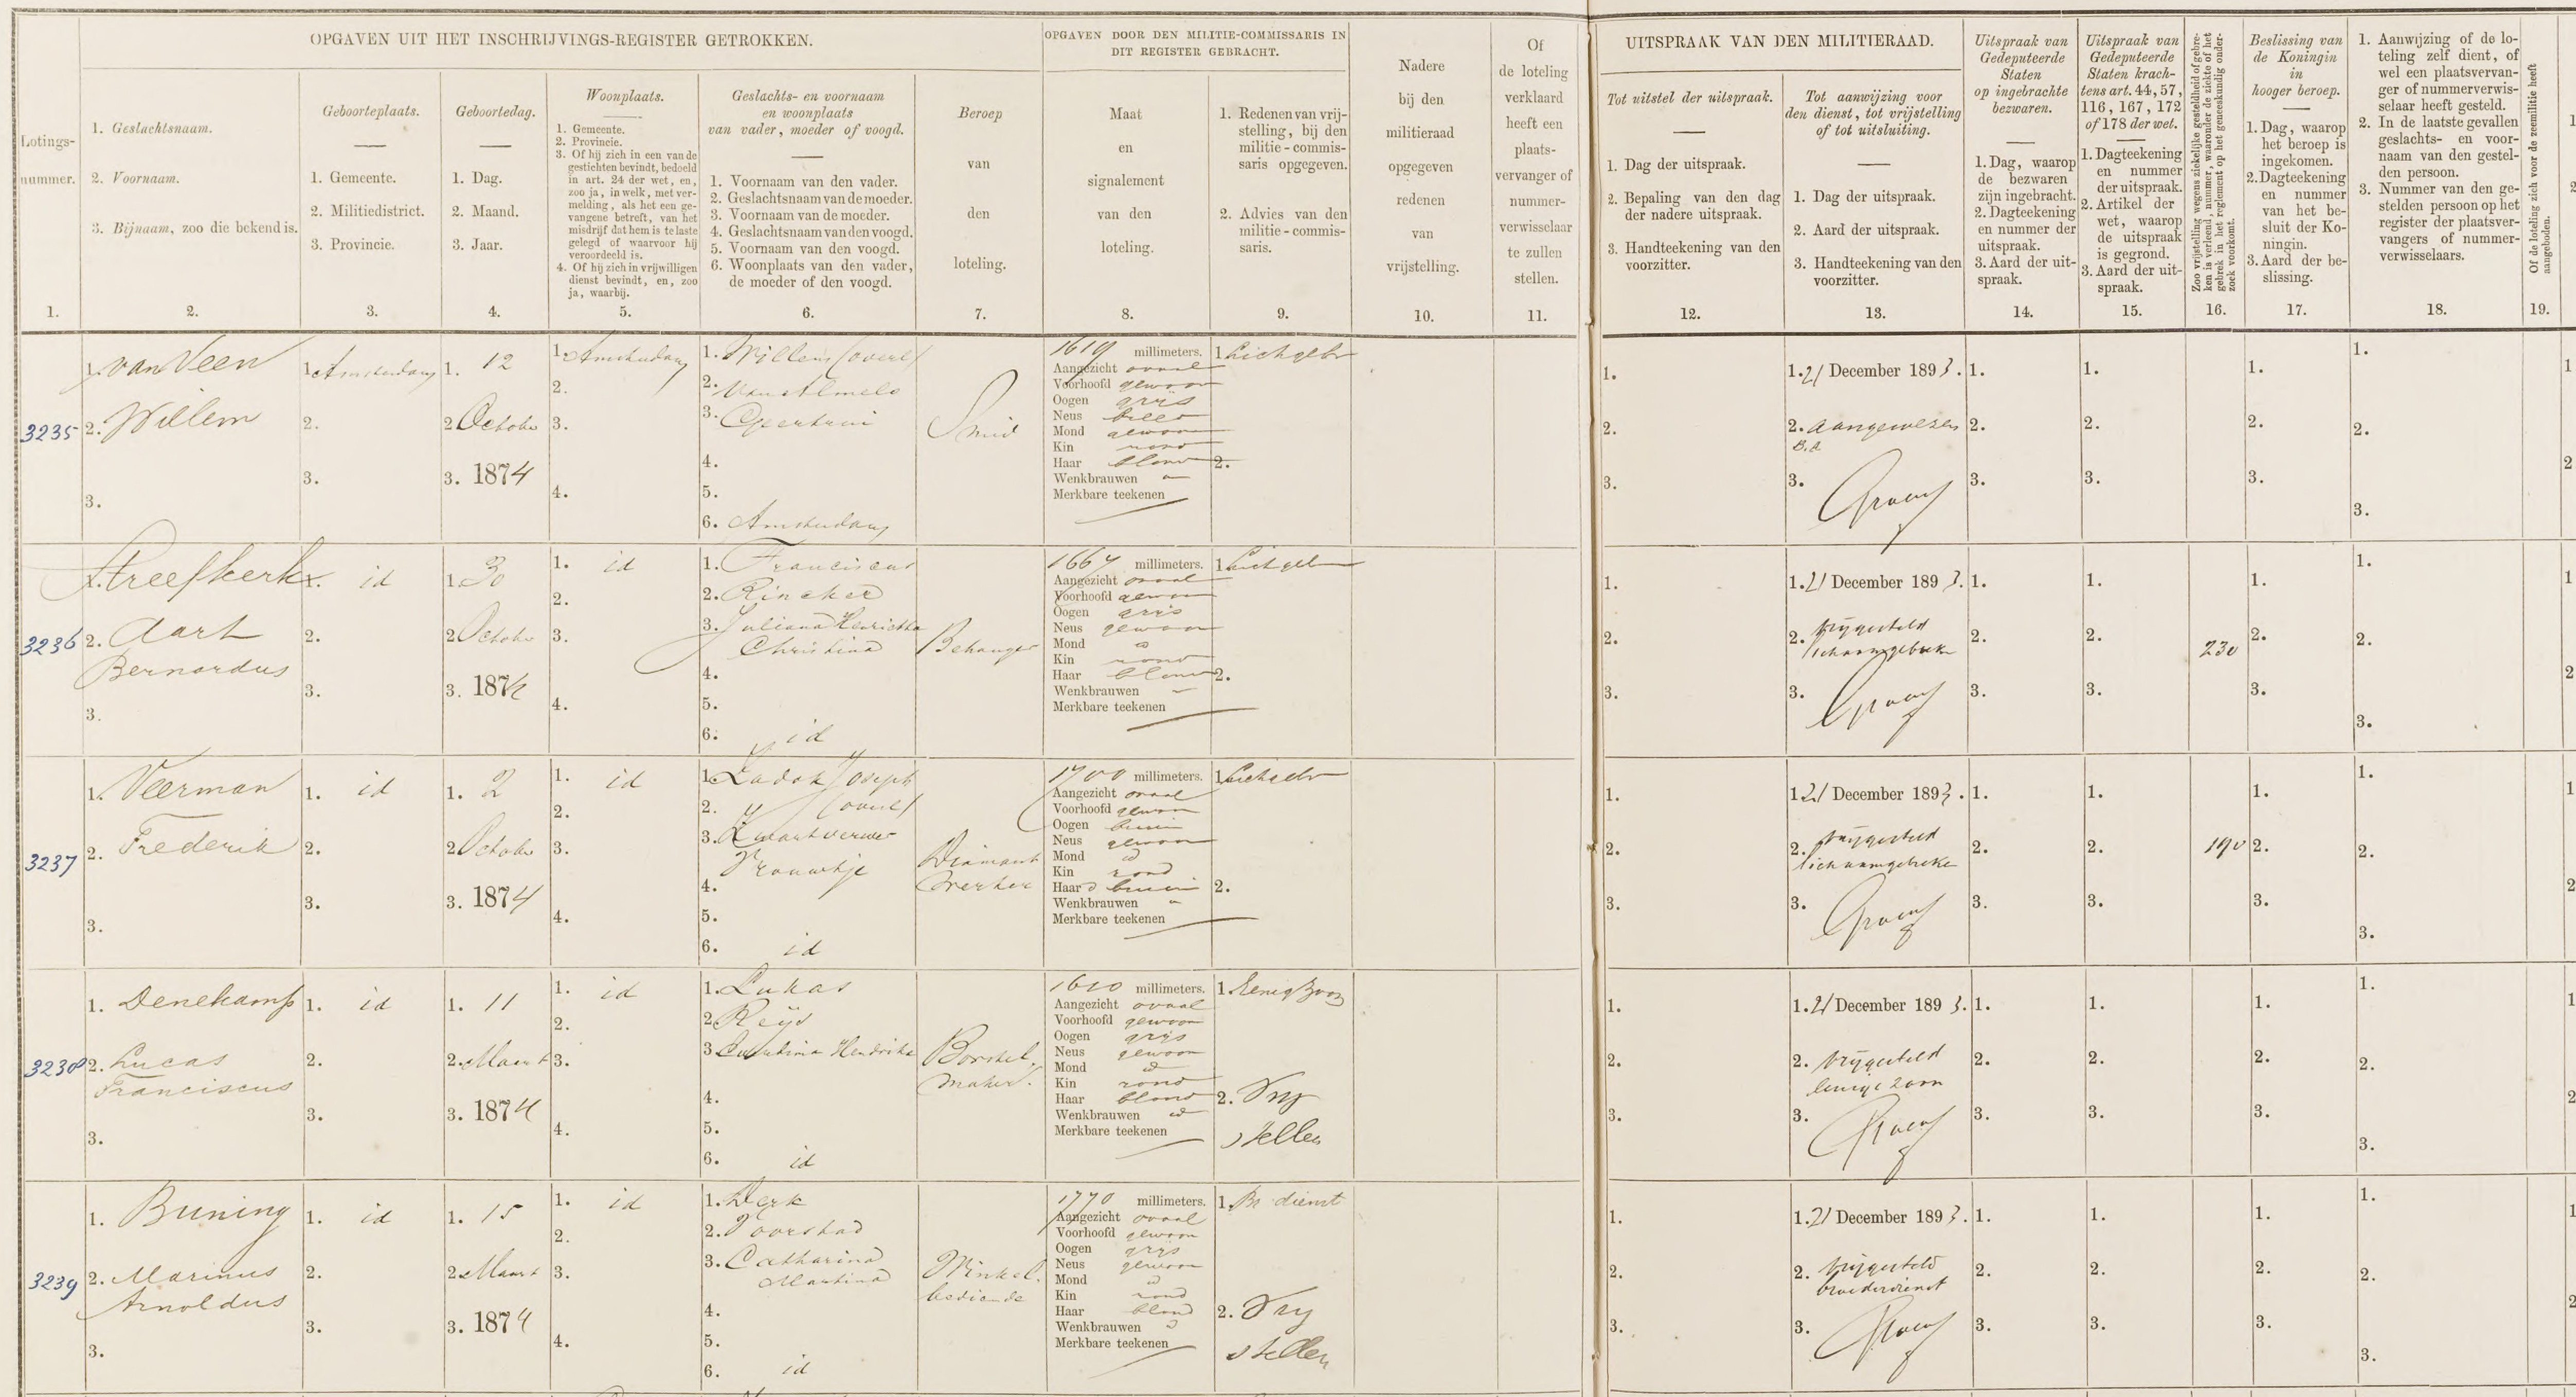 OPGAVEN UIT HET INSCHRIJVINGS-REGISTER GETROKKEN.
OPGAVEN DOOR DEN MILITIE-COMMISSARIS IN
DIT REGISTER GEBRACHT.
Lotings-
nummer.
1.
1. Geslachtsnaam.
2. Voornaam.
3. Bijnaam, zoo die bekend is.
2.
Geboorteplaats.
1. Gemeente.
2. Militiedistrict.
3. Provincie.
3.
Geboortedag.
1. Dag.
2. Maand.
3. Jaar.
4.
Woonplaats.
1. Gemeente.
2. Provincie.
3. Of hij zich in een van de
gestichten bevindt, bedoeld
in art. 24 der wet, en,
zoo ja, in welk, met ver-
melding, als het een ge-
vangene betreft, van het
misdrijf dat hem is te laste
gelegd of waarvoor hij
veroordeeld is.
4. Of hij zich in vrijwilligen
dienst bevindt, en, zoo
ja, waarbij.
5.
Geslachts- en voornaam
en woonplaats
van vader, moeder of voogd.
1. Voornaam van den vader.
2. Geslachtsnaam van de moeder.
3. Voornaam van de moeder.
4. Geslachtsnaam van den voogd.
5. Voornaam van den voogd.
6. Woonplaats van den vader,
de moeder of den voogd.
6.
Beroep
van
den
loteling.
7.
Maat
en
signalement
van den
loteling.
8.
1. Redenen van vrij-
stelling, bij den
militie-commis-
saris opgegeven.
2. Advies van den
militie-commis-
saris.
9.
Nadere
bij den
militieraad
opgegeven
redenen
van
vrijstelling.
10.
Of
de loteling
verklaard
heeft een
plaats-
vervanger of
nummer-
verwisselaar
te zullen
stellen.
11.
UITSPRAAK VAN DEN MILITIERAAD.
Tot uitstel der uitspraak.
1. Dag der uitspraak.
2. Bepaling van den dag
der nadere uitspraak.
3. Handteekening van den
voorzitter.
12.
Tot aanwijzing voor
den dienst, tot vrijstelling
of tot uitsluiting.
1. Dag der uitspraak.
2. Aard der uitspraak.
3. Handteekening van den
voorzitter.
13.
Uitspraak van
Gedeputeerde
Staten
op ingebrachte
bezwaren.
1. Dag, waarop
de bezwaren
zijn ingebracht.
2. Dagteekening
en nummer der
uitspraak.
3. Aard der uit-
spraak.
14.
Uitspraak van
Gedeputeerde
Staten krach-
tens art. 44, 57,
116, 167, 172
of 178 der wet.
1. Dagteekening
en nummer
der uitspraak.
2. Artikel der
wet, waarop
de uitspraak
is gegrond.
3. Aard der uit-
spraak.
15.
Zoo vrijstelling wegens ziekelijke gesteldheid of gebre-
ken is verleend, nummer, waaronder de ziekte of het
gebrek in het reglement op het geneeskundig onder-
zoek voorkomt.
16.
Beslissing van
de Koningin
in
hooger beroep.
1. Dag, waarop
het beroep is
ingekomen.
2. Dagteekening
en nummer
van het be-
sluit der Ko-
ningin.
3. Aard der be-
slissing.
17.
1. Aanwijzing of de lo-
teling zelf dient, of
wel een plaatsvervan-
ger of nummerverwis-
selaar heeft gesteld.
2. In de laatste gevallen
geslachts- en voor-
naam van den gestel-
den persoon.
3. Nummer van den ge-
stelden persoon op het
register der plaatsver-
vangers of nummer-
verwisselaars.
18.
Of de loteling zich voor de zeemilitie heeft
aangeboden.
19.
3235
1. van Veen
2. Willem
3.
1. Amsterdam
2.
3.
1. 12
2. Octobr
3. 1874
1. Amsterdam
2.
3.
4.
1. Willem (overl)
2. van Almelo
3. Geertrui
4.
5.
6. Amsterdam
Smid
1619 millimeters.
Aangezicht ovaal
Voorhoofd gewoon
Oogen grijs
Neus breed
Mond gewoon
Kin rond
Haar blond
Wenkbrauwen
Merkbare teekenen
1. Lichgebr
2.
1.
2.
3.
1. 21 December 1893.
2. Aangewezen
3.
1.
2.
3.
1.
2.
3.
1.
2.
3.
1.
2.
3.
3236
1. Streefkerk
2. Aart
Bernardus
3.
1. id
2.
3.
1. 30
2. Octobr
3. 1874
1. id
2.
3.
4.
1. Franciscus
2. Rincker
3. Juliana Henrietta
Christina
4.
5.
6. id
Behanger
1667 millimeters.
Aangezicht ovaal
Voorhoofd gewoon
Oogen grijs
Neus gewoon
Mond id
Kin rond
Haar blond
Wenkbrauwen
Merkbare teekenen
1. Lichgebr
2.
1.
2.
3.
1. 21 December 1893.
2. Vrijgesteld
lichaamsgebreken
3.
1.
2.
3.
1.
2.
3.
230
1.
2.
3.
1.
2.
3.
3237
1. Veerman
2. Frederik
3.
1. id
2.
3.
1. 2
2. Octobr
3. 1874
1. id
2.
3.
4.
1. Zadok Joseph
2. (overl)
3. Zwartverwer
Vrouwtje
4.
5.
6. id
Diamant
werker
1700 millimeters.
Aangezicht ovaal
Voorhoofd gewoon
Oogen bruin
Neus gewoon
Mond id
Kin rond
Haar bruin
Wenkbrauwen
Merkbare teekenen
1. Lichgebr
2.
1.
2.
3.
1. 21 December 1893.
2. Vrijgesteld
lichaamsgebreken
3.
1.
2.
3.
1.
2.
3.
190
1.
2.
3.
1.
2.
3.
3238
1. Denekamp
2. Lucas
Franciscus
3.
1. id
2.
3.
1. 11
2. Maart
3. 1874
1. id
2.
3.
4.
1. Lukas
2. Reijd
3. Hendrika
4.
5.
6. id
Borstel
maker.
1610 millimeters.
Aangezicht ovaal
Voorhoofd gewoon
Oogen grijs
Neus gewoon
Mond id
Kin rond
Haar blond
Wenkbrauwen id
Merkbare teekenen
1. Eenig Zoon
2. Vrij
stellen
1.
2.
3.
1. 21 December 1893.
2. Vrijgesteld
eenige zoon
3.
1.
2.
3.
1.
2.
3.
1.
2.
3.
1.
2.
3.
3239
1. Buning
2. Marinus
Arnoldus
3.
1. id
2.
3.
1. 15
2. Maart
3. 1874
1. id
2.
3.
4.
1. Derk
2. Voorstad
3. Catharina
Martina
4.
5.
6. id
Winkel
bediende
1770 millimeters.
Aangezicht ovaal
Voorhoofd gewoon
Oogen grijs
Neus gewoon
Mond id
Kin rond
Haar blond
Wenkbrauwen id
Merkbare teekenen
1. Br dienst
2. Vrij
stellen
1.
2.
3.
1. 21 December 1893.
2. Vrijgesteld
broederdienst
3.
1.
2.
3.
1.
2.
3.
1.
2.
3.
1.
2.
3.